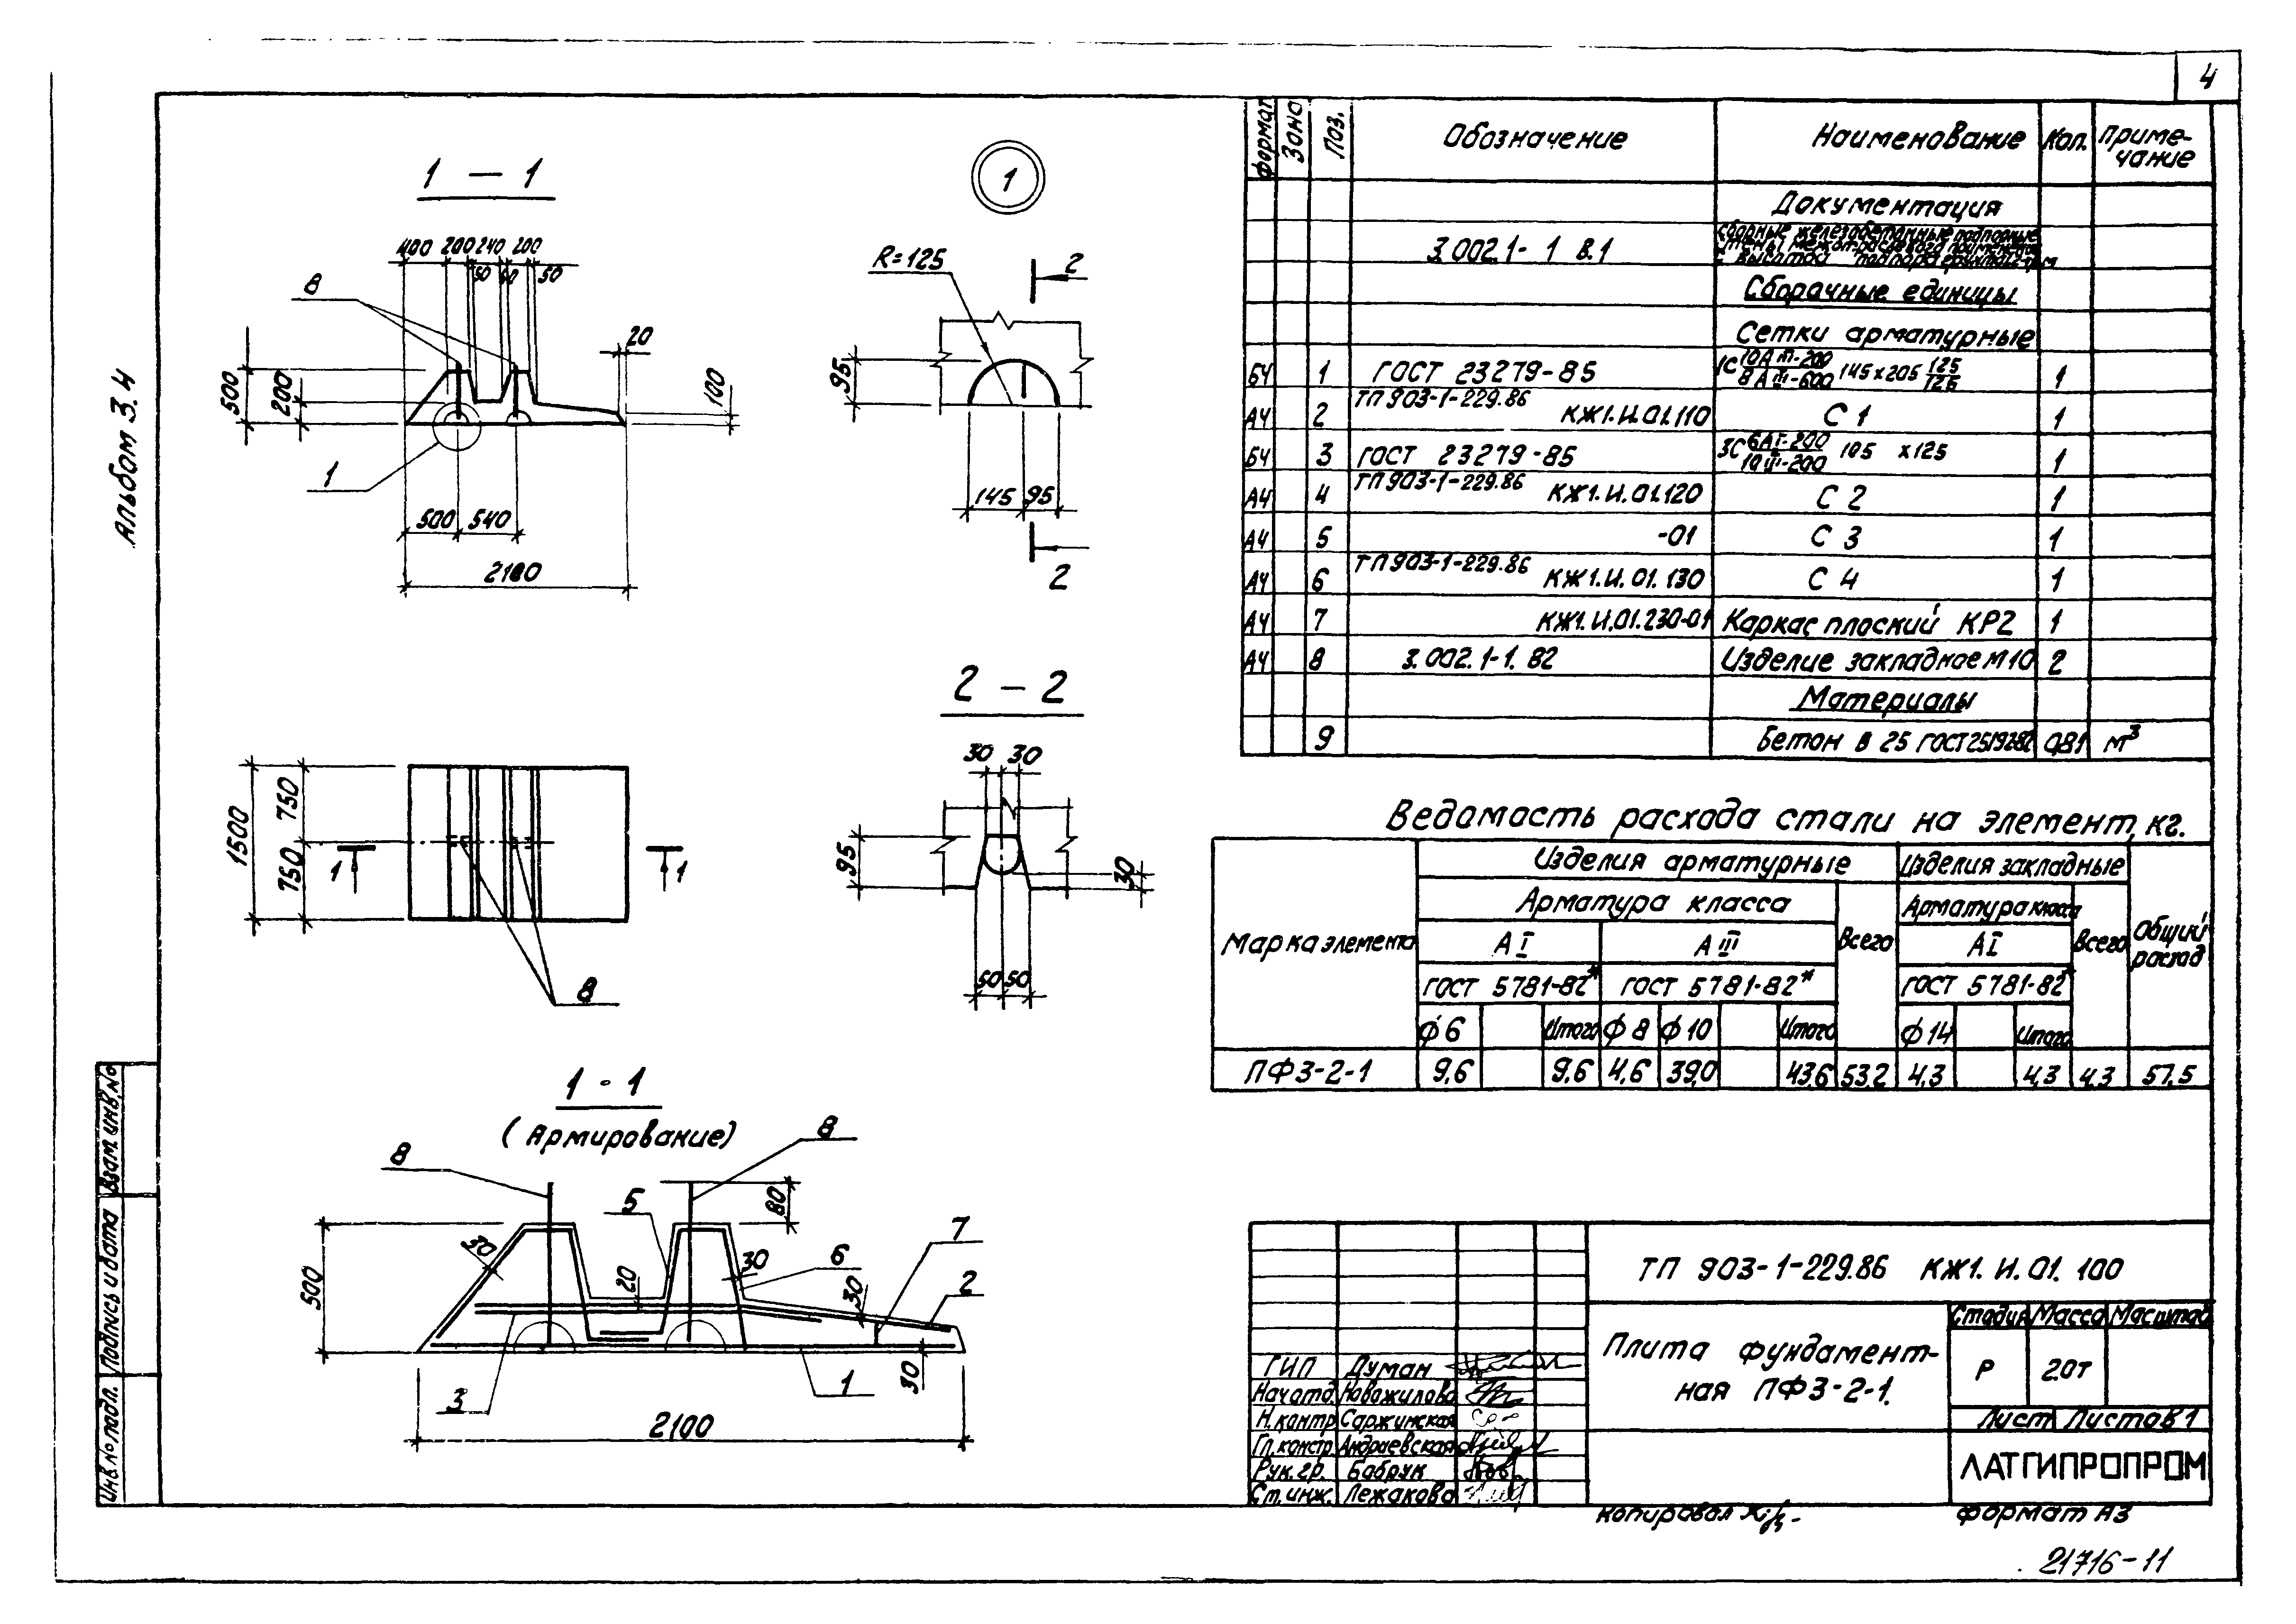 4
Альбом 3.4
1 — 1
400 200 240 200
50 60 50
8
20
500
200
100
1
500 540
2100
1
R=125
2
95
145 95
2
2 — 2
30 30
95
30
50 50
1500
750
750
1 1
8
1 - 1
(Армирование)
8 8
80
5
7
30
30
6
20
30
2
500
3
1
30
2100
Формат Зона Поз. Обозначение Наименование Кол. Приме-
чание
Документация
3.002.1- 1 в.1 Сборные железобетонные подпорные
стены межотраслевого применения
с высотой подпора грунта
Сборачные единицы
Сетки арматурные
БЧ 1 ГОСТ 23279-85 1С 10АIII-200 / 8АIII-600 145х205 125/125 1
А4 2 ТП 903-1-229.86 КЖ1.И.01.110 С 1 1
БЧ 3 ГОСТ 23279-85 3С 6АI-200 / 10III-200 105 х125 1
А4 4 ТП 903-1-229.86 КЖ1.И.01.120 С 2 1
А4 5 -01 С 3 1
А4 6 ТП 903-1-229.86 КЖ1.И.01.130 С 4 1
А4 7 КЖ1.И.01.230-01 Каркас плоский КР2 1
А4 8 3.002.1-1.82 Изделие закладное М10 2
Материалы
9 Бетон В 25 ГОСТ 25192-82 0,81 м3
Ведомость расхода стали на элемент, кг.
Марка элемента Изделия арматурные Изделия закладные Общий расход
Арматура класса Всего Арматура класса Всего
АI АIII АI
ГОСТ 5781-82* ГОСТ 5781-82* ГОСТ 5781-82*
ф6 Итого ф8 ф10 Итого ф14 Итого
ПФ3-2-1 9,6 9,6 4,6 39,0 43,6 53,2 4,3 4,3 4,3 57,5
ТП 903-1-229.86 КЖ1.И.01.100
Плита фундамент-
ная ПФ3-2-1.
Стадия Масса Масштаб
Р 2.0т
Лист Листов 1
ЛАТГИПРОПРОМ
ГИП Думан
Нач.отд. Новожилова
Н.контр. Саржинская
Гл.констр. Андриевская
Рук.гр. Бабрук
Ст.инж. Лежакова
Инв.№ подл. Подпись и дата Взам.инв.№
копировал
формат А3
21716-11